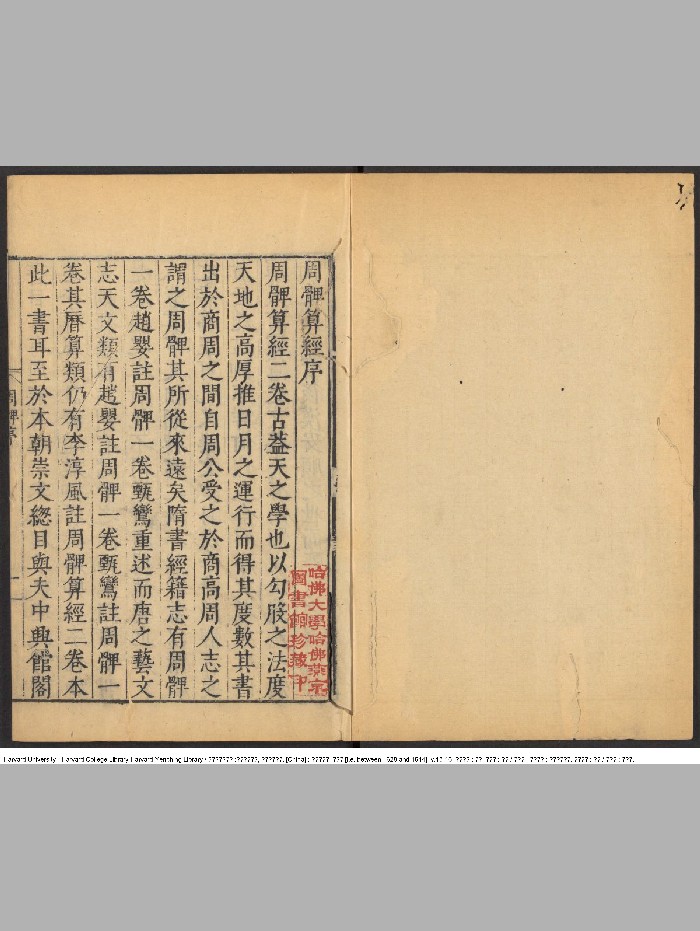 周髀算經序
周髀算經二卷古葢天之學也以勾股之法度
天地之高厚推日月之運行而得其度數其書
出於商周之間自周公受之於商高周人志之
謂之周髀其所從來遠矣隋書經籍志有周髀
一卷趙嬰註周髀一卷甄鸞重述而唐之藝文
志天文類有趙嬰註周髀一卷甄鸞註周髀一
卷其曆算類仍有李淳風註周髀算經二卷本
此一書耳至於本朝崇文總目與夫中興館閣
周髀序
哈佛大學哈佛燕京
圖書館珍藏印
Harvard University - Harvard College Library Harvard-Yenching Library / ??????? :??????, ??????. [China] : ?????, ??? [i.e. between 1628 and 1644].